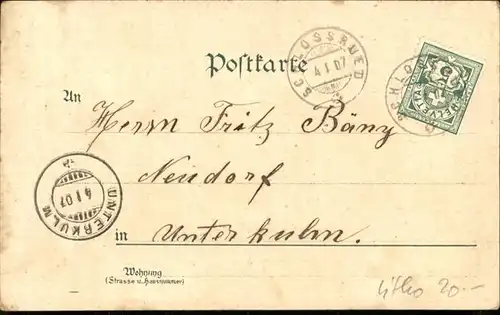 SCHLOSSRUED
4 I 07
HELVETIA
5
Postkarte
An
Herrn Fritz Bäny
Neudorf
UNTERKULM
4 I 07
in Unterkulm.
Wohnung
(Strasse u. Hausnummer)
litho 20.-